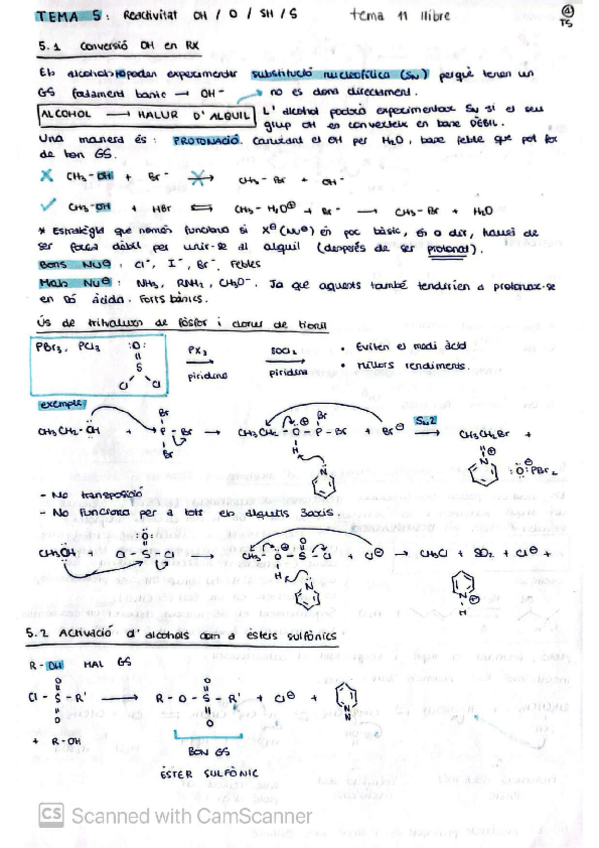 TEMA 5: Reactivitat OH / O / SH / S tema 11 llibre
① T5
5.1 Conversió OH en RX
Els alcohols no poden experimentar substitució nucleofílica (SN) perquè tenen un
GS fortament bàsic → OH⁻ → no es dona directament.
ALCOHOL → HALUR D'ALQUIL L'alcohol podrà experimentar SN si el seu
grup OH es converteix en base DÈBIL.
Una manera és: PROTONACIÓ. Canviant el OH per H₂O, base feble que pot fer
de bon GS.
CH₃-OH + Br⁻ → CH₃-Br + OH⁻
CH₃-OH + HBr ⇌ CH₃-H₂O⊕ + Br⁻ → CH₃-Br + H₂O
* Estratègia que només funciona si X⊖ (Nu⊖) és poc bàsic, és a dir,
ser força dèbil per unir-se al alquil (després de ser protonat).
Bons Nu⊖: Cl⁻, I⁻, Br⁻. Febles
Mals Nu⊖: NH₃, RNH₂, CH₃O⁻. Ja que aquests també tendirien a protonar-se
en àcida. Forts bàsics.
Ús de trihalurs de fòsfor i clorur de tionil
PBr₃, PCl₃ :O: S Cl Cl
PX₃ piridina
SOCl₂ piridina
• Eviten el medi àcid
• Millors rendiments.
exemple
CH₃CH₂-OH + Br P-Br Br → CH₃CH₂-O⊕-P-Br Br H + Br⊖ SN2 → CH₃CH₂Br +
N N H ⊕ :O⊖PBr₂
- No transposició
- No funciona per a tots els alquils 3aris.
CH₃OH + Cl-S-Cl :O: CH₃-O⊕-S-Cl O H + Cl⊖ → CH₃Cl + SO₂ + Cl⊖ +
N N⊕ H
5.2 Activació d'alcohols com a èsters sulfònics
R-OH MAL GS
Cl-S-R' O O → R-O-S-R' O O + Cl⊖ + N
+ R-OH
BON GS
ÈSTER SULFÒNIC
CS Scanned with CamScanner